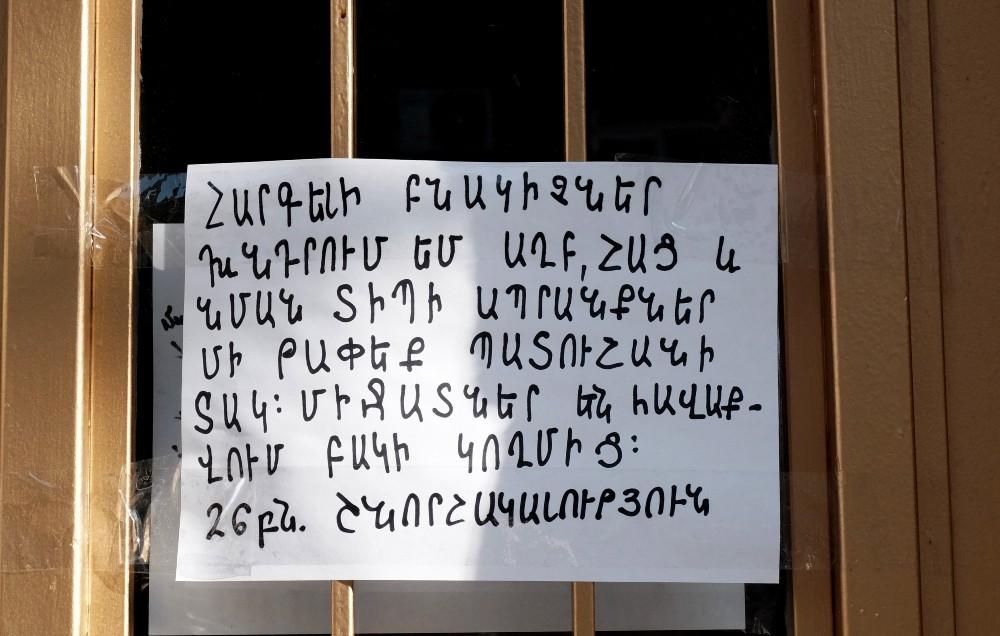 ՀԱՐԳԵԼԻ ԲՆԱԿԻՉՆԵՐ
ԽՆԴՐՈՒՄ ԵՄ ԱՂԲ, ՀԱՑ և
ՆՄԱՆ ՏԻՊԻ ԱՊՐԱՆՔՆԵՐ
ՄԻ ԹԱՓԵՔ ՊԱՏՈՒՀԱՆԻ
ՏԱԿ։ ՄԻՋԱՏՆԵՐ ԵՆ ՀԱՎԱՔ-
ՎՈՒՄ ԲԱԿԻ ԿՈՂՄԻՑ։
26 բն. ՇՆՈՐՀԱԿԱԼՈՒԹՅՈՒՆ